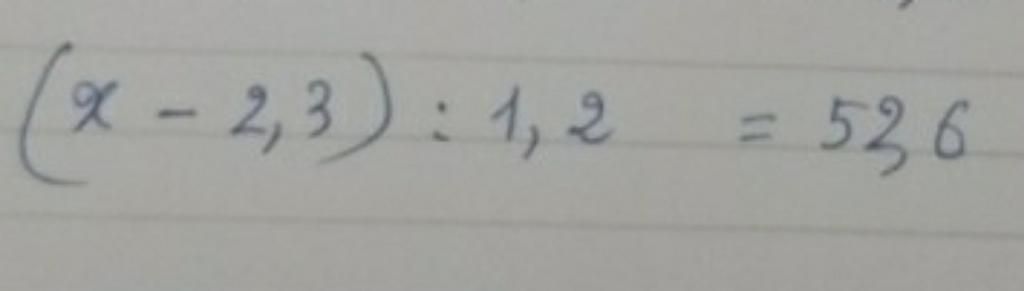 (x - 2,3) : 1,2 = 52,6